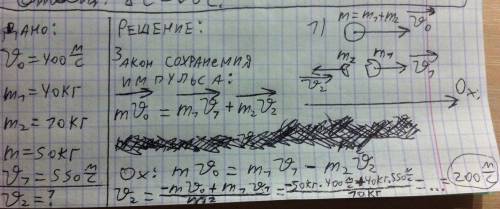 ДАНО:
v₀=400 м/с
m₁=40кг
m₂=10кг
m=50кг
v₁=550 м/с
v₂=?
РЕШЕНИЕ:
Закон сохранения
импульса:
mv₀=m₁v₁+m₂v₂
Ox: mv₀=m₁v₁-m₂v₂
v₂=(-mv₀+m₁v₁)/m₂=(-50кг·400 м/с+40кг·550 м/с)/10кг=...=200 м/с
1) m=m₁+m₂ v₀
m₂ m₁ v₁
v₂
Ox